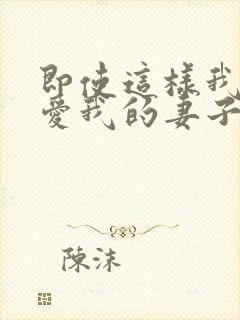 即使這樣我
愛我的妻子
陳沫